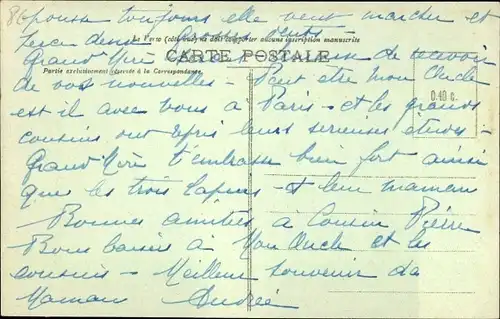 pousse toujours elle veut marcher et
perce deux grosses dents
Le Verso (côté vue) ne doit comporter aucune inscription manuscrite
CARTE POSTALE
Grand' de recevoir
Partie exclusivement réservée à la Correspondance.
de vos nouvelles - Peut être mon Oncle
0.40 c.
est il avec vous à Paris - et les grands
cousins ont repris leurs sérieuses études -
Grand' Mère t'embrasse bien fort ainsi
que les trois lapins - et leur maman
Bonnes amitiés à Cousin
Bons baisers à Mon Oncle et les
cousins - Meilleur souvenir de
Maman Andrée